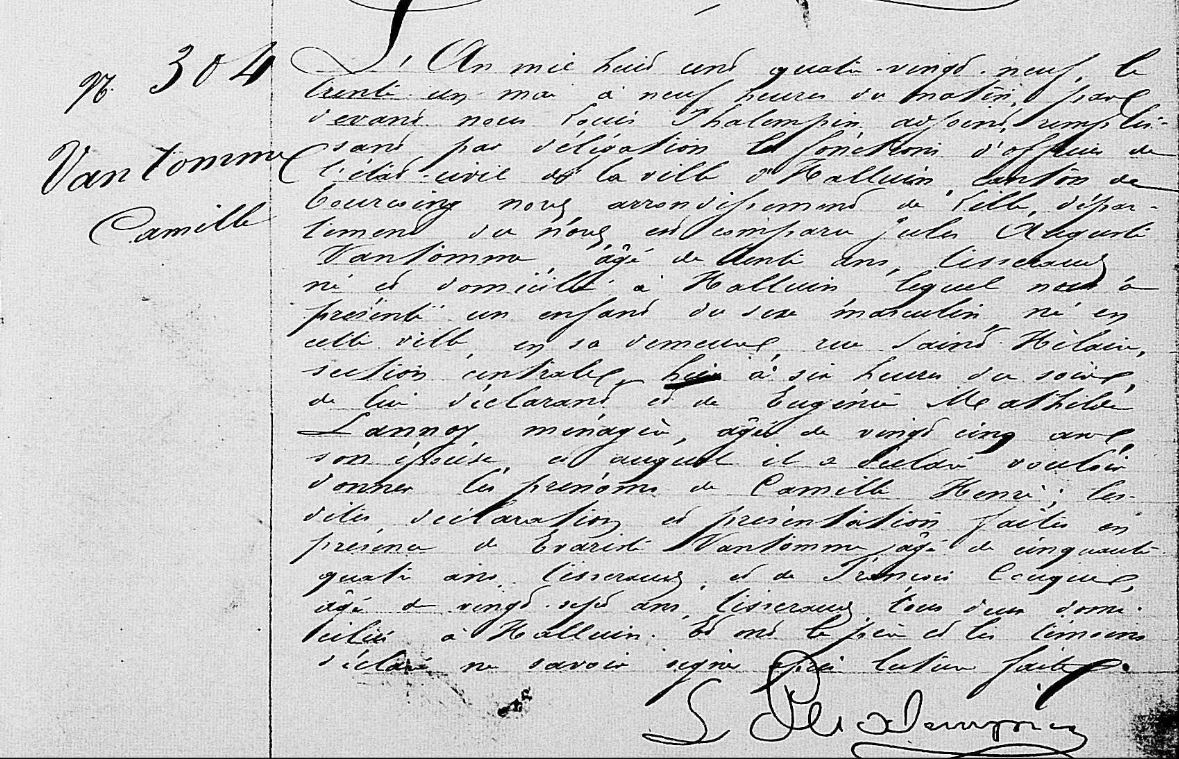 N° 304
Vantomme
Camille
L'An mil huit cent quatre-vingt-neuf, le
trente un mai à neuf heures du matin, par
devant nous Louis Thalempin adjoint, remplis-
sant par délégation les fonctions d'officier de
l'état-civil de la ville d'Halluin, canton de
Tourcoing nord, arrondissement de Lille, dépar-
tement du nord, est comparu Jules Auguste
Vantomme, âgé de trente ans, tisserand
né et domicilié à Halluin, lequel nous a
présenté un enfant du sexe masculin né en
cette ville, en sa demeure, rue Saint Hilaire,
section centrale, hier à six heures du soir,
de lui déclarant, et de Eugénie Mathilde
Lannoy ménagère, âgée de vingt cinq ans,
son épouse, et auquel il a déclaré vouloir
donner les prénoms de Camille Henri; les-
dites déclaration et présentation faites en
présence de Evariste Vantomme âgé de cinquante
quatre ans, tisserand, et de François
âgé de vingt sept ans, tisserand tous deux domi-
ciliés à Halluin. Et ont le père et les témoins
déclaré ne savoir signer après lecture faite.
L Thalempin